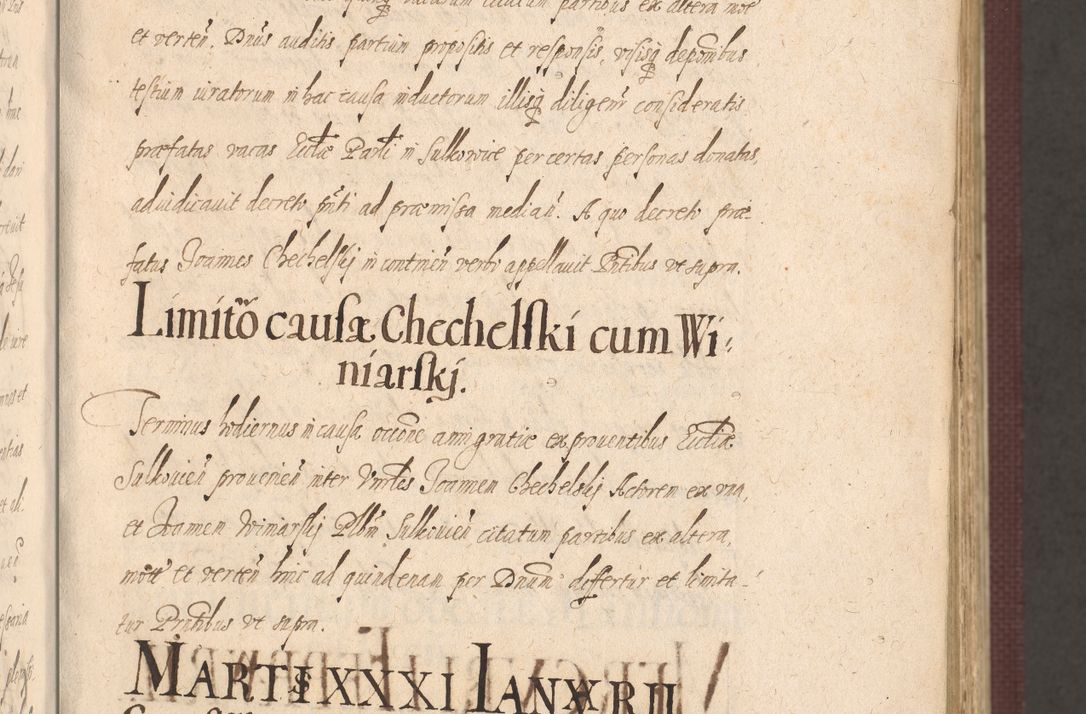 et verten̄. Dnūs auditis partium propositis et responsis, visisq̃ deponībus
testium iuratorum in hac causa inductorum illisq̃ diligenr̄ consideratis
præfatas vacas Eccl̃æ Parl̃i in Sulkowice per certas personas donatas,
adiudicavit decreto pn̄ti ad præmissa median̄. A quo decreto præ-
fatus Joannes Chechelskÿ in continen̄ verbo appellavit Pn̄tibus ut supra.
Limitō causæ Chechelski cum Wi-
niarskÿ.
Terminus hodiernus in causa occōne anni gratiæ ex proventibus Eccl̃iæ
Sulkovien̄ provenien̄ inter Vnrl̃es Joannem Chechelskÿ Actorem ex una,
et Winiarskÿ Plbm̄ Sulkovien̄ citatum partibus ex altera,
mot̄t et verten̄ hinc ad quindenam per Dnūm differtur et limita-
tur Pn̄tibus ut supra.
MARTIS XXXI IANVARII